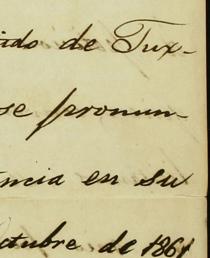 ido de Tux-
se pronun-
ncia en su
ctubre de 1861